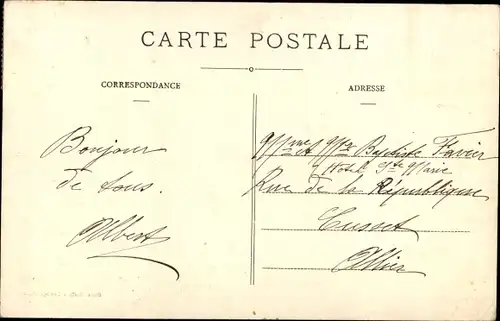 CARTE POSTALE
CORRESPONDANCE
ADRESSE
Bonjour
de tous.
Albert
Mme et Mr Baptiste Favier
Hotel Ste Marie
Rue de la République
Cusset
Allier